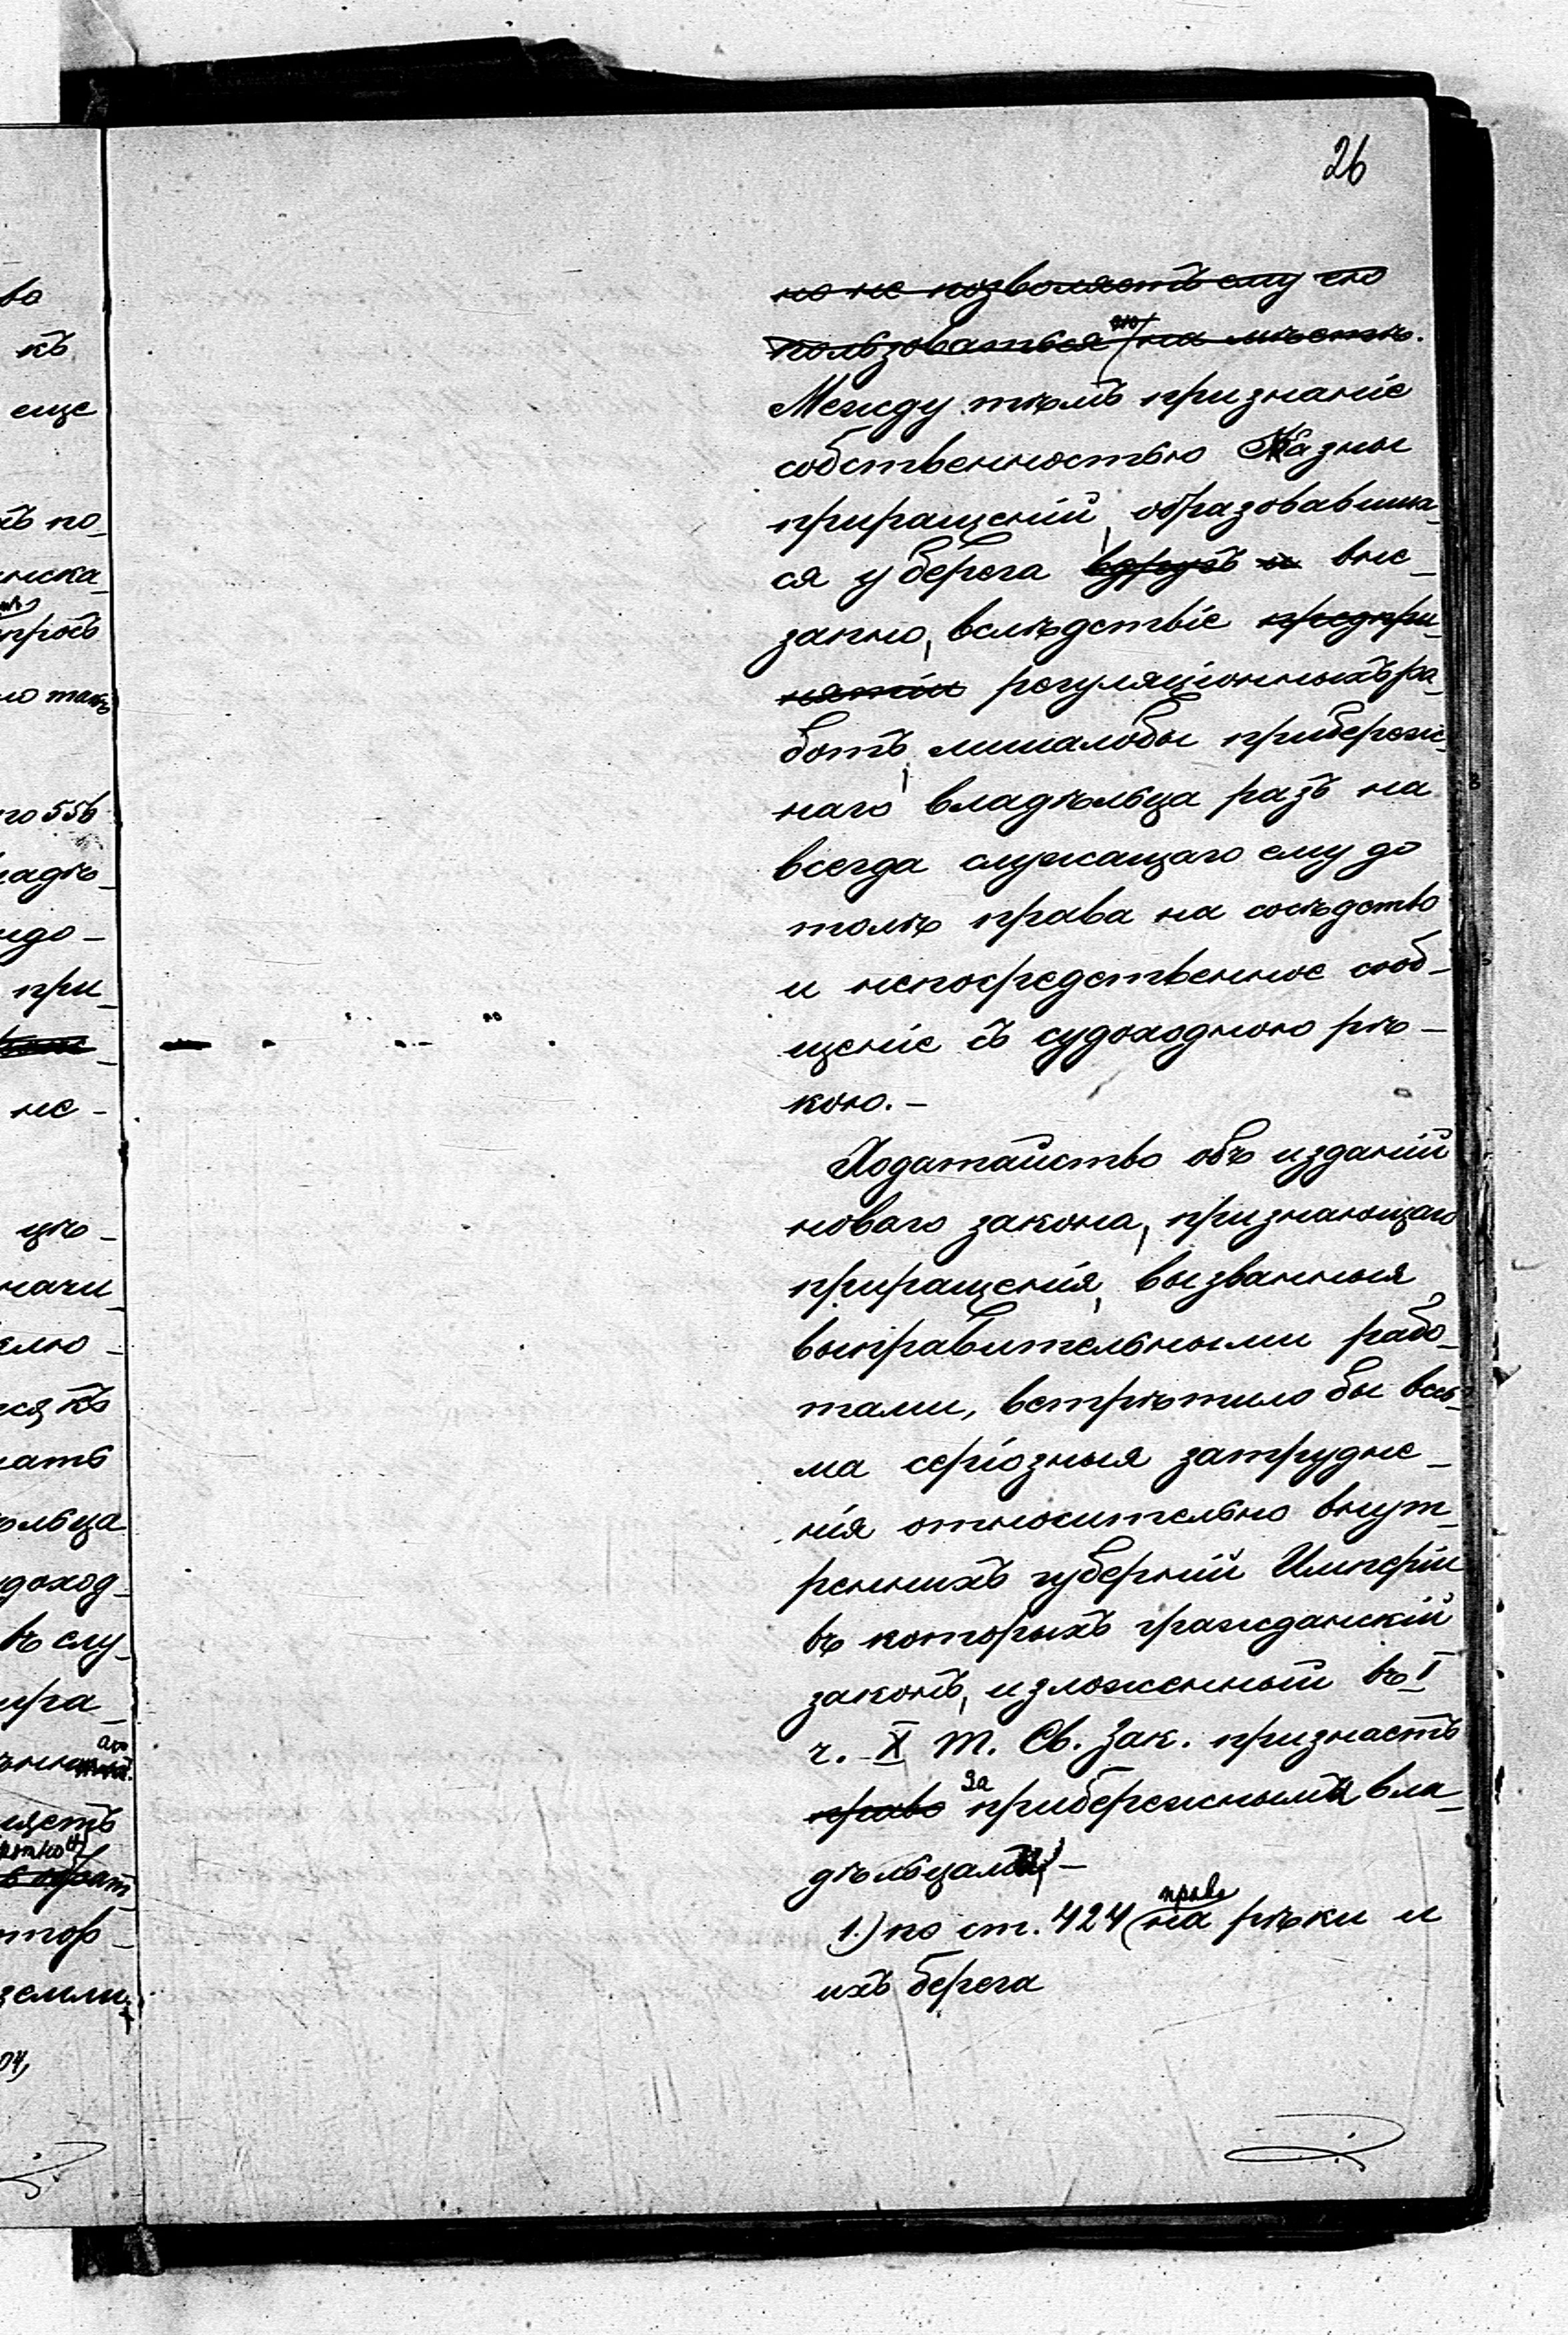 26
но не позволяетъ ему ею
пользоваться ею на мѣстѣ.
Между тѣмъ признаніе
собственностью Казны
приращеній, образовавших
ся у берега вдругъ и вне_
запно, вслѣдствіе предпри_
нятіи регуляціонныхъ ра_
ботъ, лишалобы прибереж_
наго владѣльца разъ на
всегда служащаго ему до
толѣ права на сосѣдство
и непосредственное сооб_
щеніе съ судоходною рѣ_
кою.—
Ходатайство объ изданіи
новаго закона, признающаго
приращенія, вызванныя
выправительными рабо_
тами, встрѣтило бы весь_
ма серіозныя затрудне_
нія относительно внут_
реннихъ губерній Имперіи
въ которыхъ гражданскій
законъ, изложенный въ I
ч. X т. Св. Зак. признаетъ
право за прибережными вла_
дѣльцами,—
1.) по ст. 424 право на рѣки и
ихъ берега
во
къ
еще
по_
нска_
проъ
го 556
ладѣ_
при_
не_
цѣ_
начи_
ся къ
ать
ольца
доход_
въ слу_
пра_
тор_
земли